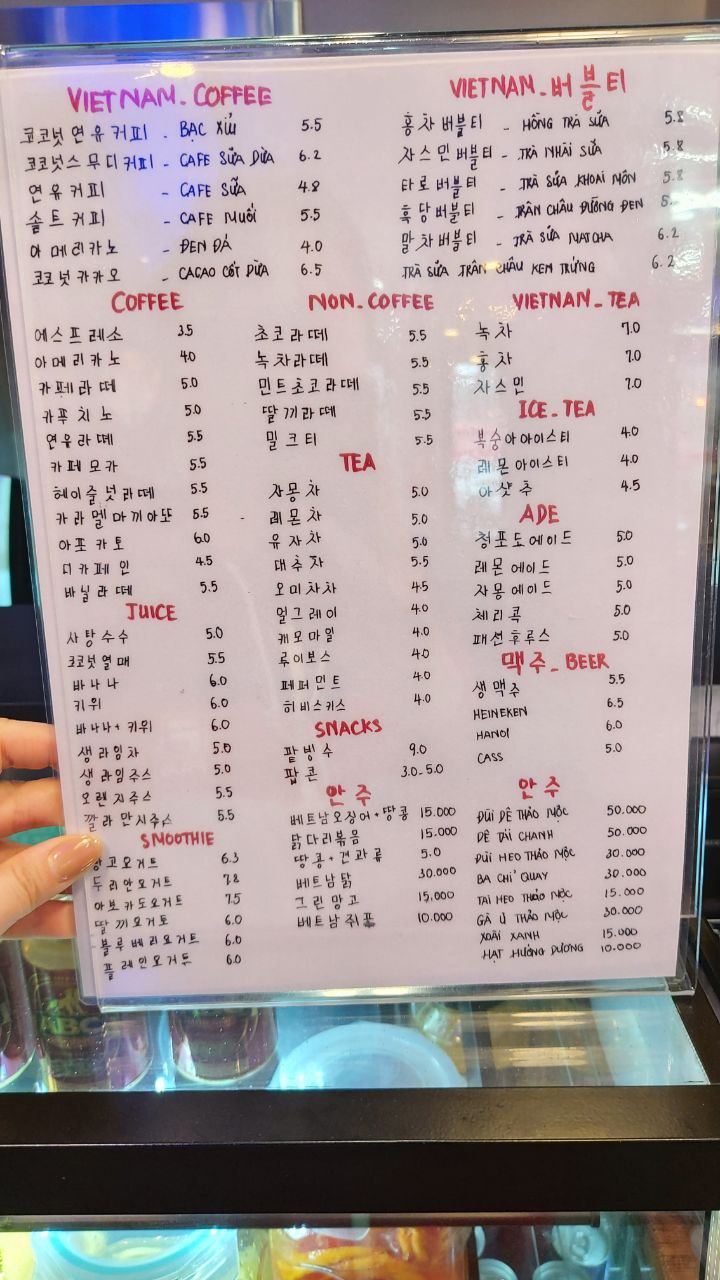 VIETNAM - COFFEE
코코넛 연유커피 - BẠC XỈU 5.5
코코넛스무디커피 - CAFE SỮA DỪA 6.2
연유커피 - CAFE SỮA 4.8
솔트커피 - CAFE MUỐI 5.5
아메리카노 - ĐEN ĐÁ 4.0
코코넛카카오 - CACAO CỐT DỪA 6.5
VIETNAM - 버블티
홍차버블티 - HỒNG TRÀ SỮA 5.8
자스민버블티 - TRÀ NHÀI SỮA 5.8
타로버블티 - TRÀ SỮA KHOAI MÔN 5.8
흑당버블티 - TRÂN CHÂU ĐƯỜNG ĐEN
말차버블티 - TRÀ SỮA MATCHA 6.2
TRÀ SỮA TRÂN CHÂU KEM TRỨNG 6.2
COFFEE
에스프레소 3.5
아메리카노 4.0
카페라떼 5.0
카푸치노 5.0
연유라떼 5.5
카페모카 5.5
헤이즐넛라떼 5.5
카라멜마끼아또 5.5
아포카토 6.0
디카페인 4.5
바닐라떼 5.5
JUICE
사탕수수 5.0
코코넛열매 5.5
바나나 6.0
키위 6.0
바나나+키위 6.0
생라임차 5.0
생라임주스 5.0
오렌지주스 5.5
깔라만시주스 5.5
SMOOTHIE
망고요거트 6.3
두리안요거트 7.2
아보카도요거트 7.5
딸끼요거토 6.0
블루베리요거트 6.0
플레인요거투 6.0
NON - COFFEE
초코라떼 5.5
녹차라떼 5.5
민트초코라떼 5.5
딸끼라떼 5.5
밀크티 5.5
TEA
자몽차 5.0
레몬차 5.0
유자차 5.0
대추차 5.5
오미차차 4.5
얼그레이 4.0
캐모마일 4.0
루이보스 4.0
페퍼민트 4.0
히비스키스 4.0
SNACKS
팥빙수 9.0
팝콘 3.0-5.0
안주
베트남오징어+땅콩 15.000
닭다리볶음 15.000
땅콩+견과류 5.0
베트남닭 30.000
그린망고 15.000
베트남쥐포 10.000
VIETNAM - TEA
녹차 7.0
홍차 7.0
자스민 7.0
ICE - TEA
복숭아아이스티 4.0
레몬아이스티 4.0
아샷추 4.5
ADE
청포도에이드 5.0
레몬에이드 5.0
자몽에이드 5.0
체리콕 5.0
패션후루스 5.0
맥주 - BEER
생맥주 5.5
HEINEKEN 6.5
HANOI 6.0
CASS 5.0
안주
ĐÙI DÊ THẢO MỘC 50.000
DÊ TÁI CHANH 50.000
ĐÙI HEO THẢO MỘC 30.000
BA CHỈ QUAY 30.000
TAI HEO THẢO MỘC 15.000
GÀ Ủ THẢO MỘC 30.000
XOÀI XANH 15.000
HẠT HƯỚNG DƯƠNG 10.000